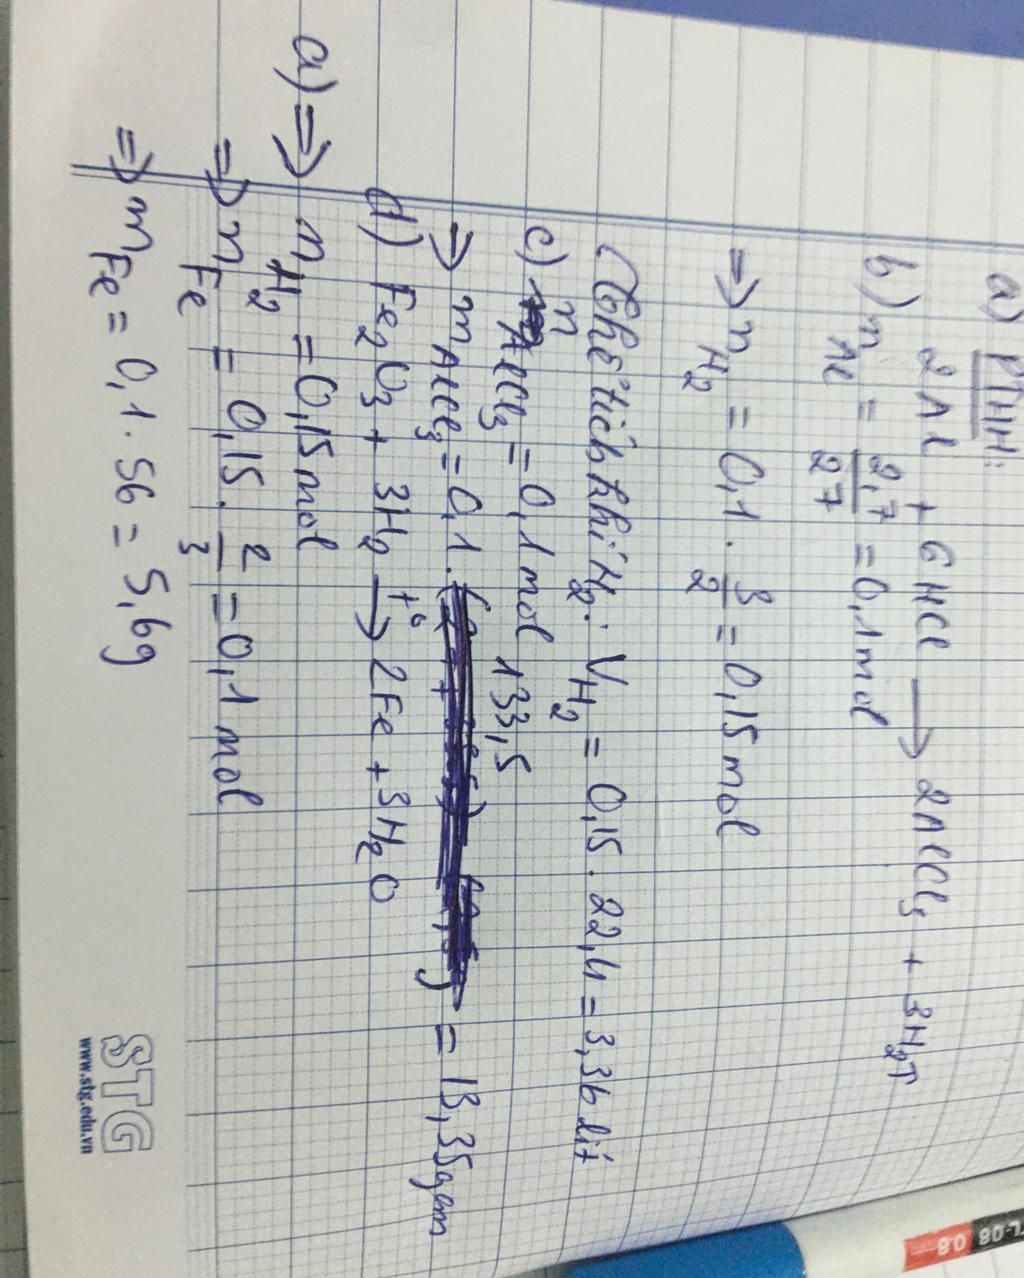 a) PTHH:
2Al + 6HCl → 2AlCl3 + 3H2↑
b) nAl = 2,7/27 = 0,1 mol
=> nH2 = 0,1 . 3/2 = 0,15 mol
(Thể tích khí H2: VH2 = 0,15 . 22,4 = 3,36 lít
c) nAlCl3 = 0,1 mol
133,5
=> mAlCl3 = 0,1 . = 13,35 gam
d) Fe2O3 + 3H2 t° → 2Fe + 3H2O
a) => nH2 = 0,15 mol
=> nFe = 0,15 . 2/3 = 0,1 mol
=> mFe = 0,1 . 56 = 5,6g
STG
www.stg.edu.vn
L-08 0.8